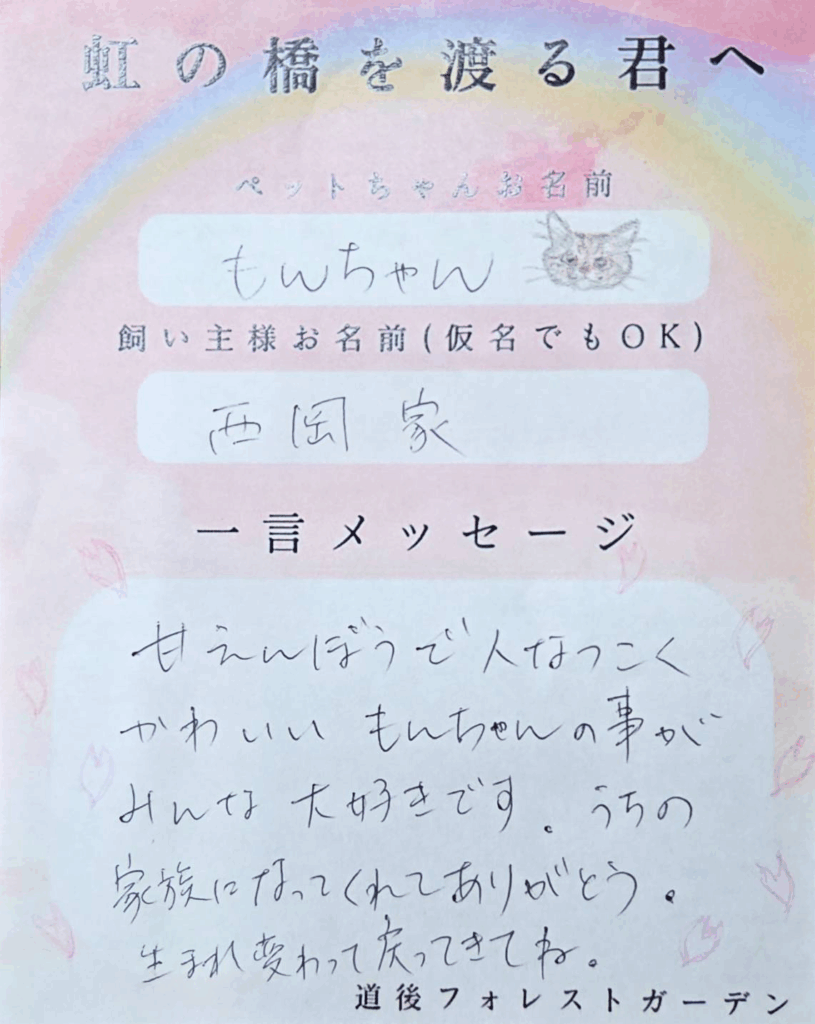 虹の橋を渡る君へ
ペットちゃんお名前
もんちゃん
飼い主様お名前(仮名でもOK)
西岡家
一言メッセージ
甘えんぼうで人なつこく
かわいい もんちゃんの事が
みんな 大好きです。うちの
家族になってくれてありがとう。
生まれ変わって戻ってきてね。
道後フォレストガーデン